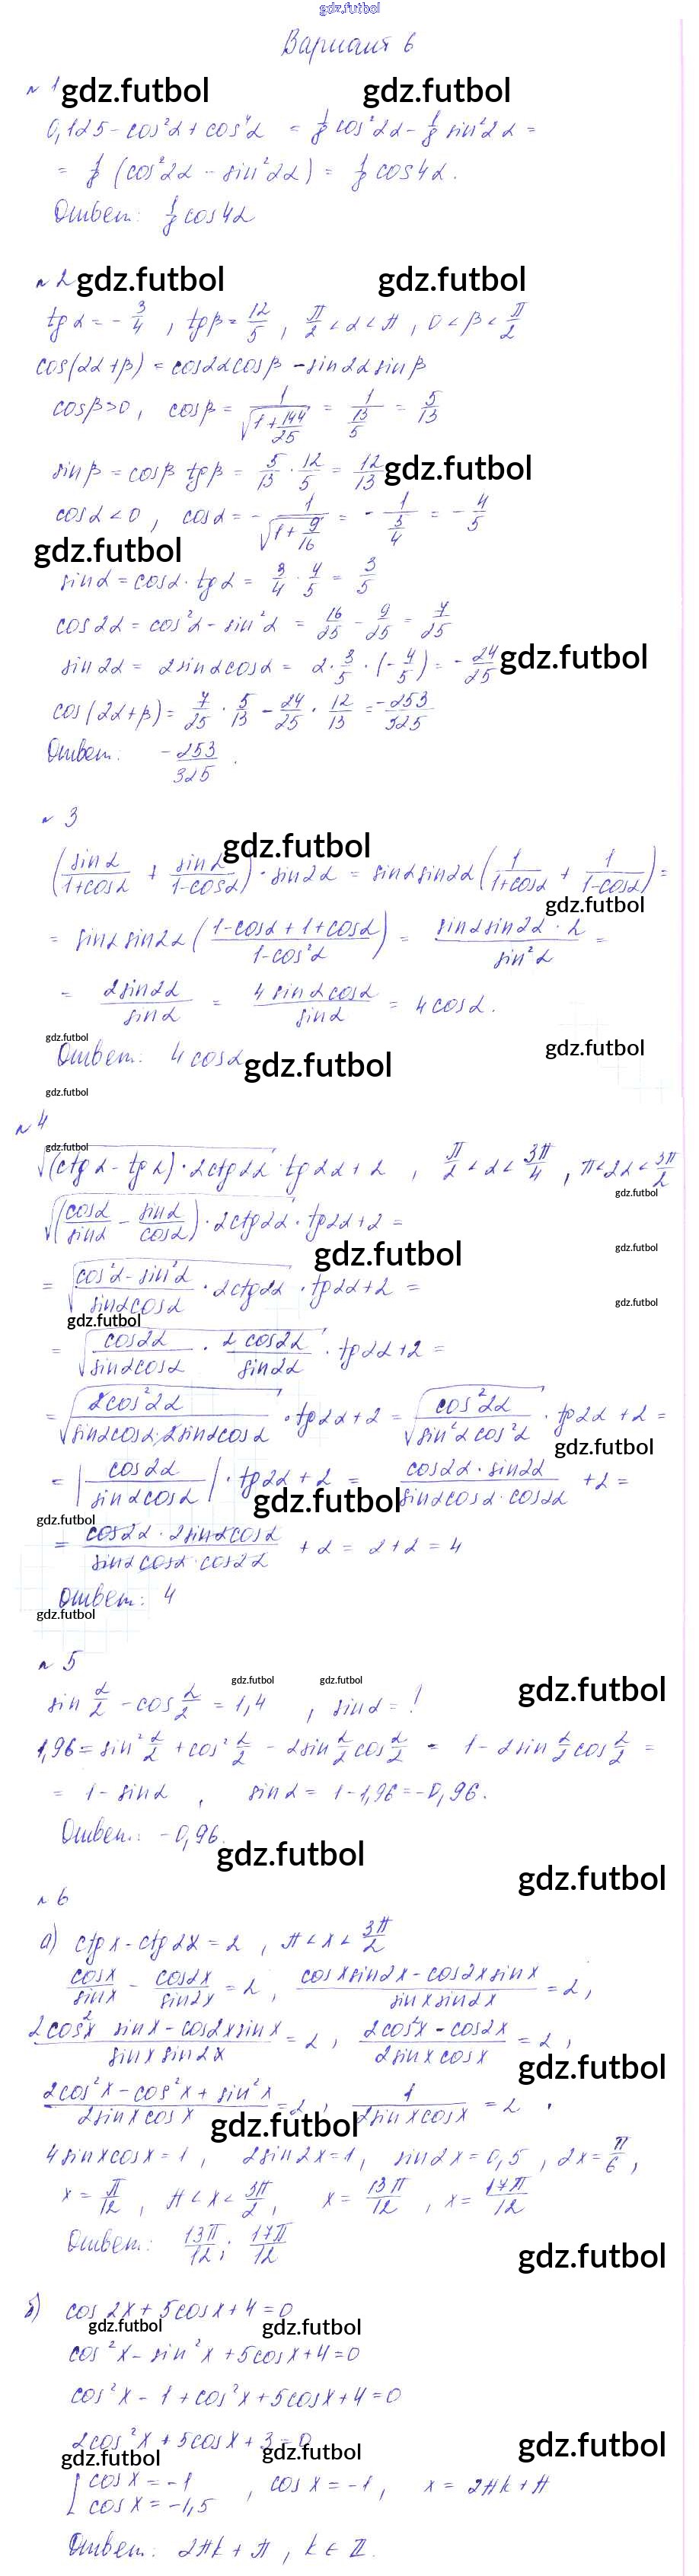 gdz.futbol
Вариант 6
№ 1 gdz.futbol gdz.futbol
0,125 - cos²α + cos⁴α = 1/8 cos²2α - 1/8 sin²2α =
= 1/8 (cos²2α - sin²2α) = 1/8 cos4α.
Ответ: 1/8 cos4α
№ 2 gdz.futbol gdz.futbol
tg α = - 3/4 , tg β = 12/5 , π/2 < α < π , 0 < β < π/2
cos(2α+β) = cos2α cosβ - sin2α sinβ
cosβ>0, cosβ = 1/√(1+144/25) = 1/(13/5) = 5/13
sinβ = cosβ tgβ = 5/13 · 12/5 = 12/13 gdz.futbol
cosα < 0, cosα = - 1/√(1+9/16) = - 1/(5/4) = - 4/5
gdz.futbol
sinα = cosα · tgα = 3/4 · 4/5 = 3/5
cos2α = cos²α - sin²α = 16/25 - 9/25 = 7/25
sin2α = 2sinαcosα = 2 · 3/5 · (-4/5) = - 24/25 gdz.futbol
cos(2α+β) = 7/25 · 5/13 - 24/25 · 12/13 = -253/325
Ответ: -253/325 .
№ 3
gdz.futbol
(sinα/(1+cosα) + sinα/(1-cosα)) · sin2α = sinα sin2α (1/(1+cosα) + 1/(1-cosα)) =
gdz.futbol
= sinα sin2α ((1-cosα+1+cosα)/(1-cos²α)) = (sinα sin2α · 2)/sin²α =
= 2sin2α/sinα = 4sinαcosα/sinα = 4cosα.
gdz.futbol gdz.futbol
Ответ: 4cosα gdz.futbol
gdz.futbol
№ 4
gdz.futbol
√((ctgα - tgα) · 2ctg2α) · tg2α + 2 , π/2 < α < 3π/4 , π<2α<3π/2
gdz.futbol
√((cosα/sinα - sinα/cosα) · 2ctg2α) · tg2α + 2 =
gdz.futbol gdz.futbol
= √((cos²α - sin²α)/(sinαcosα) · 2ctg2α) · tg2α + 2 =
gdz.futbol
gdz.futbol
= √(cos2α/(sinαcosα) · 2cos2α/sin2α) · tg2α + 2 =
= √(2cos²2α/(sinαcosα·2sinαcosα)) · tg2α + 2 = √(cos²2α/(sin²αcos²α)) · tg2α + 2 =
gdz.futbol
= |cos2α/(sinαcosα)| · tg2α + 2 = (cos2α · sin2α)/(sinαcosα · cos2α) + 2 =
gdz.futbol
gdz.futbol
= (cos2α · 2sinαcosα)/(sinαcosα · cos2α) + 2 = 2+2 = 4
Ответ: 4
gdz.futbol
№ 5
gdz.futbol gdz.futbol gdz.futbol
sin α/2 - cos α/2 = 1,4 , sinα = !
1,96 = sin² α/2 + cos² α/2 - 2sin α/2 cos α/2 = 1 - 2sin α/2 cos α/2 =
= 1 - sinα , sinα = 1 - 1,96 = -0,96.
Ответ: -0,96.
gdz.futbol
gdz.futbol
№ 6
а) ctgx - ctg2x = 2 , π < x < 3π/2
cosx/sinx - cos2x/sin2x = 2 , (cosxsin2x - cos2xsinx)/(sinxsin2x) = 2,
(2cos²x sinx - cos2xsinx)/(sinx sin2x) = 2 , (2cos²x - cos2x)/(2sinx cosx) = 2 ,
gdz.futbol
(2cos²x - cos²x + sin²x)/(2sinxcosx) = 2 , 1/(2sinxcosx) = 2 ,
gdz.futbol
4sinxcosx = 1 , 2sin2x = 1 , sin2x = 0,5 , 2x = π/6 ,
x = π/12 , π < x < 3π/2 , x = 13π/12 , x = 17π/12
Ответ: 13π/12 ; 17π/12
gdz.futbol
б) cos2x + 5cosx + 4 = 0
gdz.futbol gdz.futbol
cos²x - sin²x + 5cosx + 4 = 0
cos²x - 1 + cos²x + 5cosx + 4 = 0
2cos²x + 5cosx + 3 = 0
gdz.futbol gdz.futbol gdz.futbol
[cosx = -1
cosx = -1,5 , cosx = -1, x = 2πk + π
Ответ: 2πk + π , k ∈ Z.